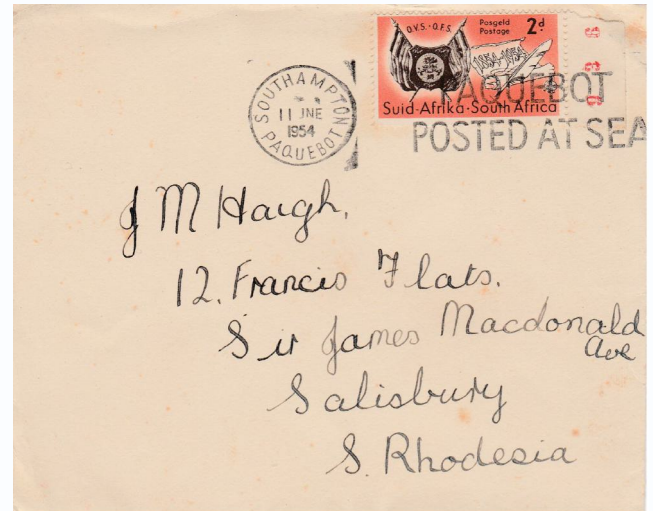 O.V.S.-O.F.S. Posgeld 2d
Postage
1854-1954
Suid-Afrika·South Africa
SOUTHAMPTON
11 JNE
1954
PAQUEBOT
PAQUEBOT
POSTED AT SEA
J M Haigh,
12. Francis Flats.
Sir James Macdonald
Ave
Salisbury
S. Rhodesia